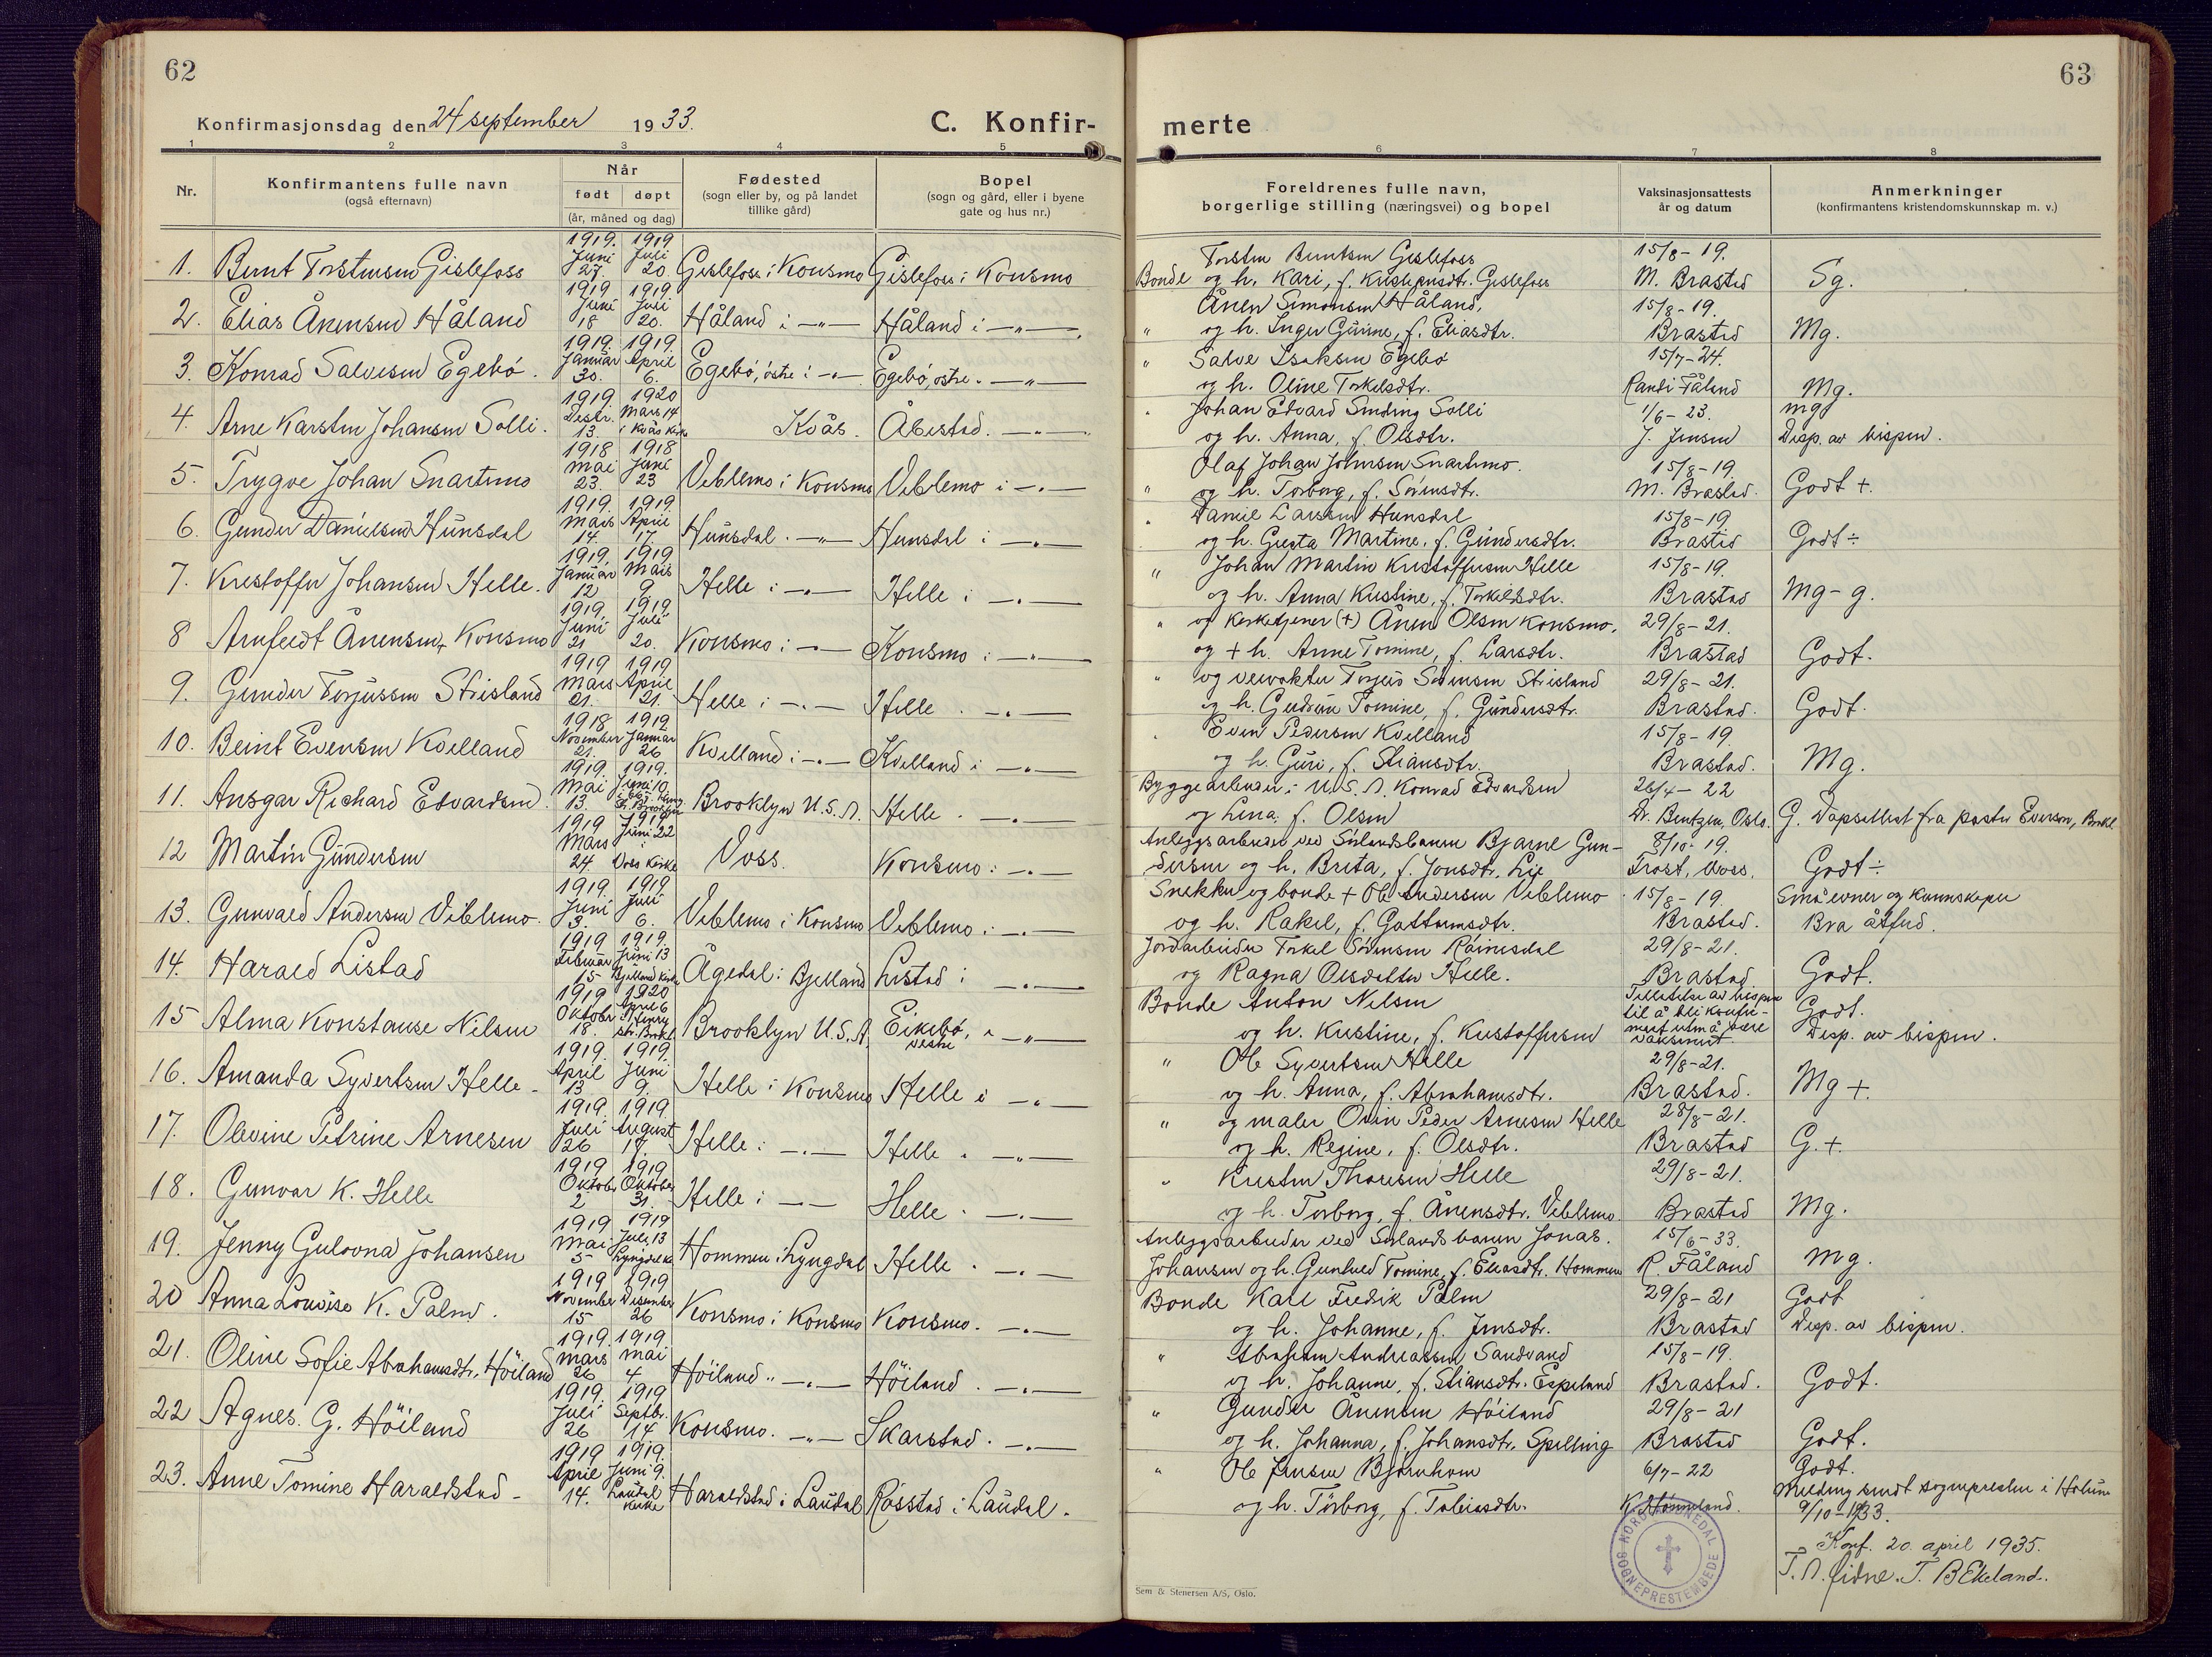 62
63
Konfirmasjonsdag den 24 september 1933.
C. Konfir-
merte
1 2 3 4 5 6 7 8
Nr.
Konfirmantens fulle navn
(også efternavn)
Når
født døpt
(år, måned og dag)
Fødested
(sogn eller by, og på landet
tillike gård)
Bopel
(sogn og gård, eller i byene
gate og hus nr.)
Foreldrenes fulle navn,
borgerlige stilling (næringsvei) og bopel
Vaksinasjonsattests
år og datum
Anmerkninger
(konfirmantens kristendomskunnskap m. v.)
1919. 1919 Torsten Berntsen Gislefoss 15/8-19.
1. Bernt Torstensen Gislefoss Juni 27. Juli 20. Gislefoss i Konsmo Gislefoss i Konsmo Bonde og h. Kari, f. Kristensdtr. Gislefoss M. Brastad Sg.
1919 1919 Ånen Simonsen Håland, 15/8-19.
2. Elias Ånensen Håland Juni 18 Juli 20. Håland i -„- Håland i -„- „ og h. Inger Gurine, f. Eliasdtr. Brastad Mg.
1919. 1919. „ Salve Isaksen Egebö 15/7-24.
3. Konrad Salvesen Egebö. Januar 30. April 6. Egebö, östre i -„- Egebö, östre. -„- og h. Oline Torkelsdtr. Randi Fåland Mg.
1919. 1920 Johan Edvard Sinding Solli 1/6-23. mg
4. Arne Karsten Johansen Solli. Desbr. 13. Mars 14 i Kvås kirke Kvås. Åbestad. -„- og h. Anna, f. Olsdtr. J. Jensen Disp. av bispen.
1918 1918 Olaf Johan Johnsen Snartemo. 15/8-19.
5. Trygve Johan Snartemo Mai 23. Juni 23 Veblemo i Konsmo Veblemo i -„- „ og h. Torborg, f. Sörensdtr. M. Brastad. Godt +.
1919. 1919. Daniel Larssen Hunsdal 15/8-19.
6. Gunder Danielsen Hunsdal Mars 14. April 17. Hunsdal. -„- Hunsdal i -„- og h. Greta Martine, f. Gundersdtr. Brastad Godt ÷
1919. 1919 „ Johan Martin Kristoffersen Helle 15/8-19.
7. Kristoffer Johansen Helle. Januar 12 Mars 9. Helle i -„- Helle i -„- og h. Anna Kristine, f. Torkildsdtr. Brastad Mg-g.
1919. 1919 „ og kirketjener (+) Ånen Olsen Konsmo, 29/8-21.
8 Arnfeedt Ånensen Konsmo Juni 21 Juli 20. Konsmo i -„- Konsmo i -„- og + h. Anne Tomine, f. Larsdtr. Brastad Godt.
1919 1919 „ og veivokter Torjus Sörensen Strisland 29/8-21.
9. Gunder Torjussen Strisland Mars 21. April 21. Helle i -„- Helle. -„- og h. Gudrun Tomine, f. Gundersdtr. Brastad. Godt.
1918 1919 Even Pedersen Kvelland 15/8-19
10. Beint Evensen Kvelland November 21. Januar 26 Kvelland i -„- Kvelland i -„- og h. Guri, f. Stiansdtr. Brastad. Mg.
1919. 1919. Byggearbeider i U.S.A. Konrad Edvardsen 26/4-22
11. Ansgar Richard Edvardsen. Mai 13. Juni 10. Brooklyn U.S.A. Helle. -„- og Lina, f. Olsen Dr. Bentzen, Oslo. G. Dåpsattest fra pastor Everson, Brokl.
1919 1919 Anleggsarbeider ved Sörlandsbanen Bjarne Gun- 8/10-19.
12 Martin Gundersen Mars 24. Juni 22 i Voss kirke Voss. Konsmo i -„- dersen og h. Brita, f. Jonsdtr. Lie Trost, Voss. Godt ÷
1919. 1919. Snekker og bonde + Ole Andersen Veblemo 15/8-19. Små evner og kunnskaper
13. Gunvald Andersen Veblemo. Juni 3. Juli 6. Veblemo i Konsmo Veblemo i -„- og h. Rakel, f. Guttormsdtr. Brastad. Bra åtferd.
1919 1919. Jordarbeider Torkel Sörensen Röinesdal 29/8-21.
14. Harald Listad Februar 15 Juni 13 Bjelland kirke Ågedal i Bjelland Listad i -„- og Ragna Olsdatter Helle. Brastad Godt.
1919 1920 Bonde Anton Nilsen Tillatelse av bispen Godt.
15 Alma Konstanse Nilsen Oktober 18. April 6 Brooklyn U.S.A. Eikebö, vestre i -„- og h. Kristine, f. Kristoffersen til å bli konfir-mert uten å være vaksinert Disp. av bispen.
1919. 1919. „ Ole Syvertsen Helle 29/8-21.
16. Amanda Syvertsen Helle - April 13 Juni 9. Helle i Konsmo Helle i -„- og h. Anna, f. Abrahamsdtr. Brastad. Mg+.
1919. 1919. „ og maler Odin Peder Arnesen Helle 28/8-21.
17. Olevine Petrine Arnesen Juli 26 August 17. Helle i -„- Helle. -„- og h. Regine, f. Olsdtr. Brastad G.+.
1919 1919 „ Kristen Thoresen Helle 29/8-21.
18. Gunvor K. Helle Oktober 2 Oktober 31. Helle i -„- Helle. -„- og h. Torborg, f. Ånensdtr. Veblemo. Brastad Mg.
1919 1919 Anleggsarbeider ved Sörlandsbanen Jonas. 15/6-33.
19. Jenny Gulovna Johansen Mai 5 Juli 13 Hommen i Lyngdal Helle. -„- Johansen og h. Gunhild Tomine, f. Eliasdtr. Hommen R. Fåland Mg.
1919 1919 Bonde Karl Fredrik Palm 29/8-21 Godt
20 Anna Lovise K. Palm. November 15 Desember 26 Konsmo i Konsmo Konsmo. -„- og h. Johanne, f. Jensdtr. Brastad Disp. av bispen.
1919. 1919 „ Abraham Andreassen Sandvand 15/8-19.
21. Oline Sofie Abrahamsdtr. Höiland Mars 26 Mai 4 Höiland „ -„- Höiland. -„- og h. Johanne, f. Stiansdtr. Espeland Brastad. Godt.
1919. 1919. „ Gunder Ånensen Höiland 29/8-21
22 Agnes. G. Höiland Juli 26 Septbr. 14 Konsmo. -„- Skarstad. -„- og h. Johanna, f. Johansdtr. Spilling Brastad Godt.
1919 1919. „ Ole Jensen Bjørnhom 6/7-22 Godt.
23. Anne Tomine Haraldstad - April 14. Juni 9. Laudal kirke Haraldstad i Laudal Rosstad i Laudal. og h. Torborg, f. Tobiasdtr. Melding sendt sognepresten i Holum
9/10-1933.
Konf. 20. april 1935.
T. B Ekeland.
SOGNEPRESTEMBEDE
Sem & Stenersen A/S, Oslo.